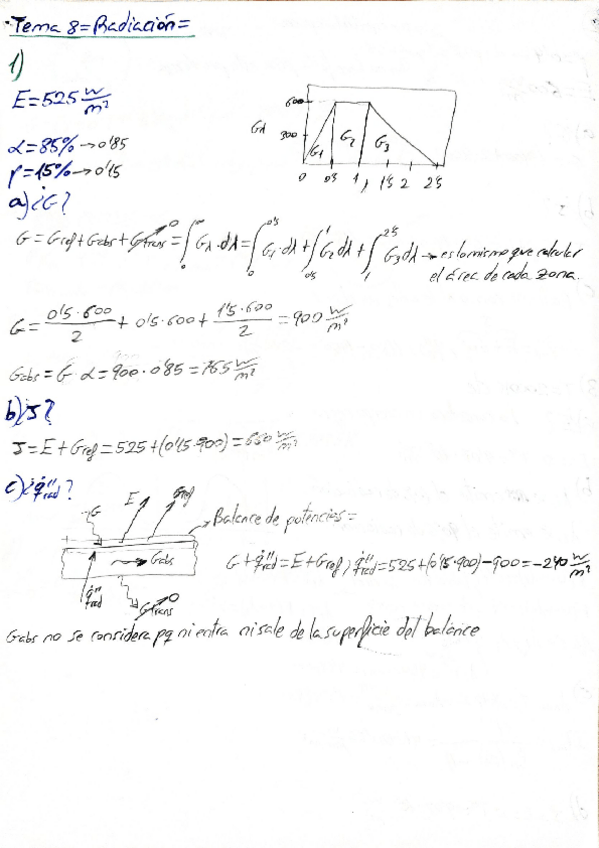 Tema 8=Radiación=
1)
E=525 W/m²
α=85%→0'85
ρ=15%→0'15
Gλ 600 300 G1 G2 G3
0 0'5 1 1'5 2 2'5
a)¿G?
G=Gref+Gabs+Gtrans⁰=∫₀^∞ Gλ·dλ=∫₀^0'5 G1·dλ+∫0'5^1 G2dλ+∫₁^2'5 G3dλ→es lo mismo que calcular
el área de cada zona.
G=(0'5·600)/2+0'5·600+(1'5·600)/2=900 W/m²
Gabs=G·α=900·0'85=765 W/m²
b)¿J?
J=E+Gref=525+(0'15·900)=660 W/m²
c)¿q̇"rad?
G E Gref
Balance de potencias=
Gabs
G+q̇"rad=E+Gref, q̇"rad=525+(0'15·900)-900=-240 W/m²
q̇"rad
Gtrans⁰
Gabs no se considera pq ni entra ni sale de la superficie del balance